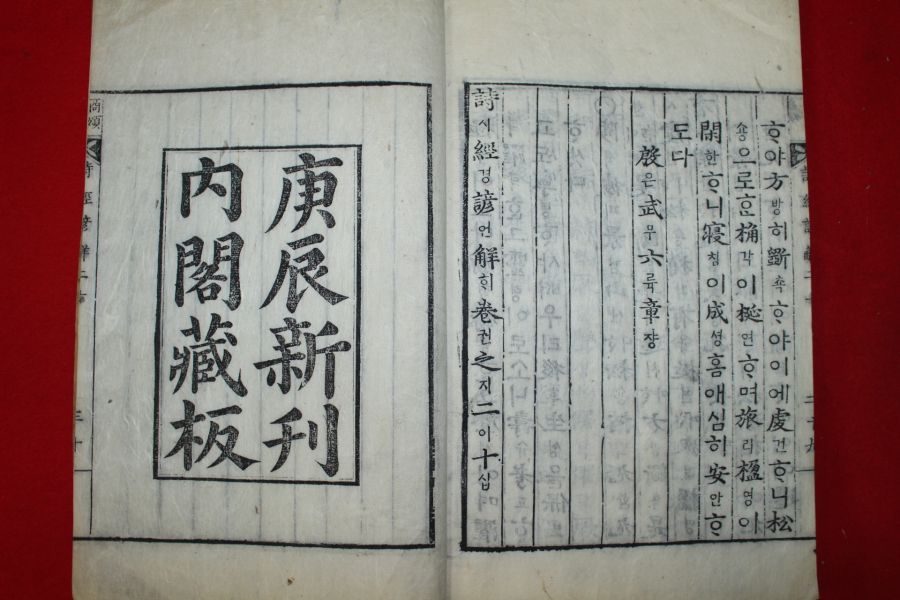 詩經諺解二十
ᄒᆞ야方방히斲쵹ᄒᆞ야이에虔건ᄒᆞ니松
숑으로ᄒᆞᆫ桷각이梴연ᄒᆞ며旅려楹영이
閑한ᄒᆞ니寢침이成셩홈애심히安안ᄒᆞ
도다
殷은武무六륙章쟝
詩시經경諺언解ᄒᆡ卷권之지二이十십
庚辰新刊
內閣藏板
商頌
詩經諺解二十
三十